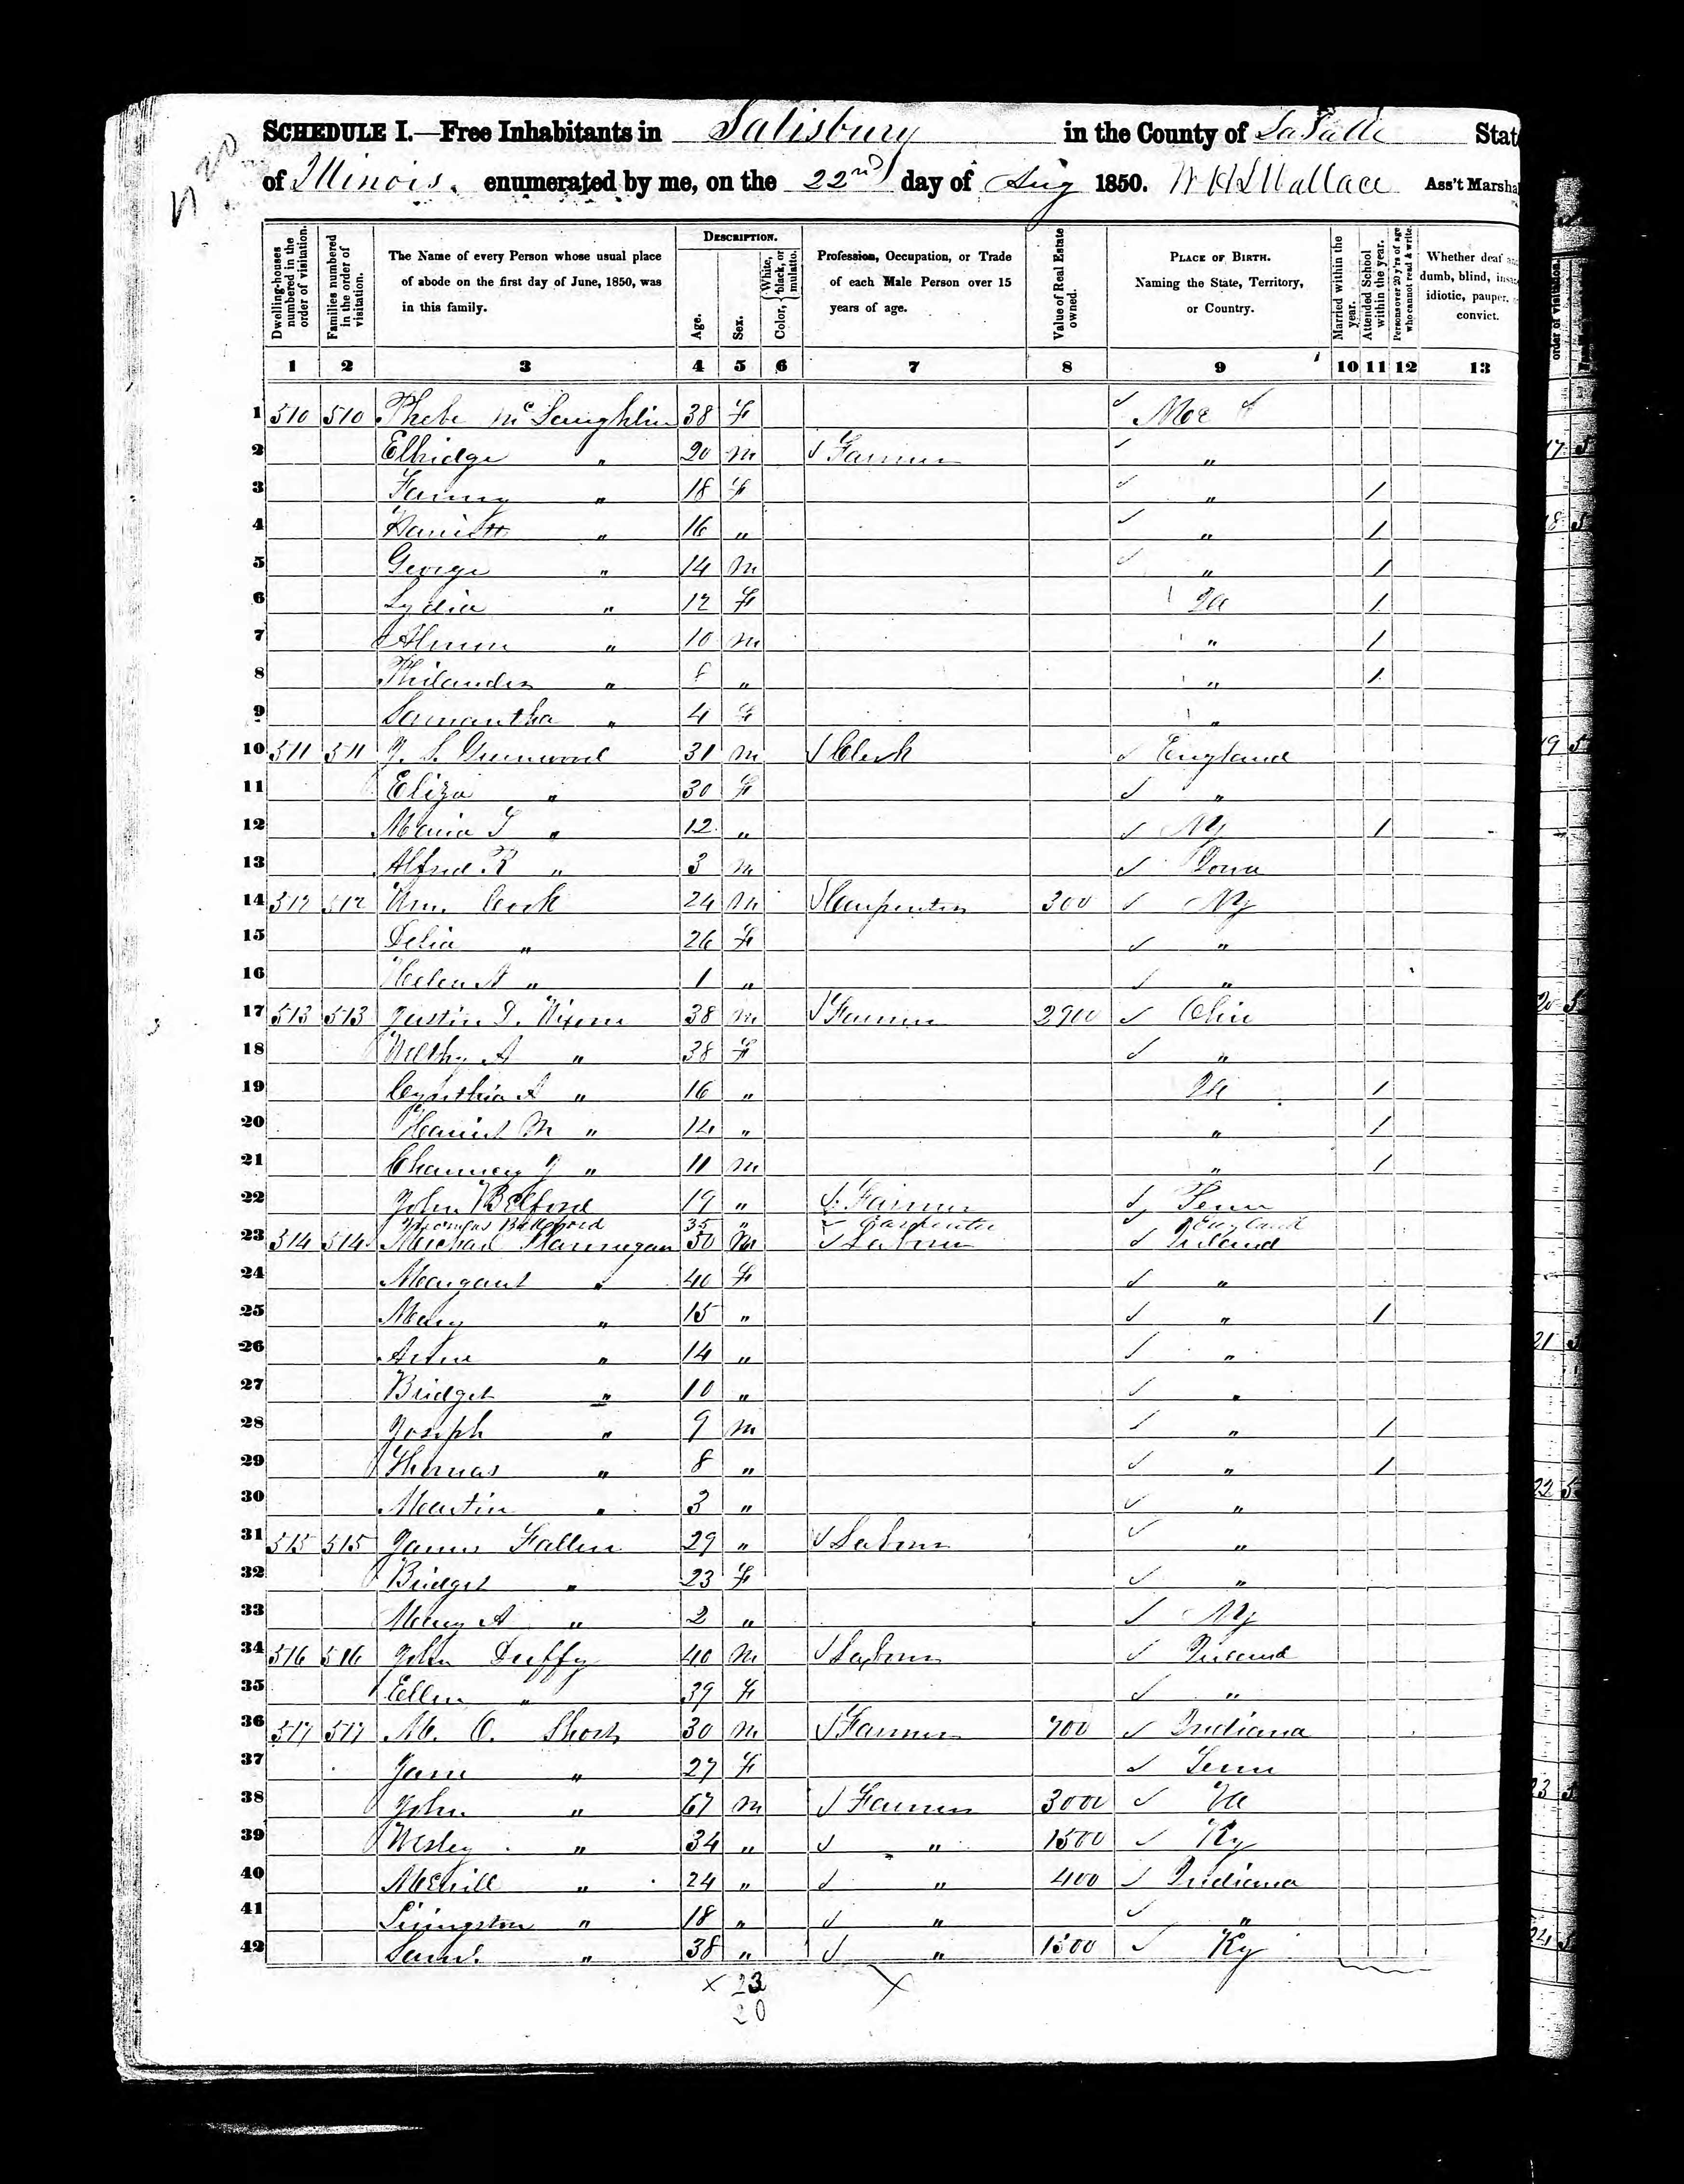 SCHEDULE I.—Free Inhabitants in Salisbury in the County of LaSalle State
of Illinois. enumerated by me, on the 22nd day of Aug 1850. W H L Wallace Ass't Marshal
Dwelling-houses numbered in the order of visitation.
Families numbered in the order of visitation.
The Name of every Person whose usual place of abode on the first day of June, 1850, was in this family.
DESCRIPTION.
Age.
Sex.
Color, { White, black, or mulatto.
Profession, Occupation, or Trade of each Male Person over 15 years of age.
Value of Real Estate owned.
PLACE OF BIRTH. Naming the State, Territory, or Country.
Married within the year.
Attended School within the year.
Persons over 20 y'rs of age who cannot read & write.
Whether deaf and dumb, blind, insane, idiotic, pauper, or convict.
1 2 3 4 5 6 7 8 9 10 11 12 13
1 510 510 Phebe McLaughlin 38 F
2 Elbridge " 20 M Farmer "
3 Fanny " 18 F " /
4 Harriett " 16 " " /
5 George " 14 M " /
6 Lydia " 12 F Ill /
7 Almon " 10 M " /
8 Philander " 8 " " /
9 Samantha " 4 F "
10 511 511 J. S. Greenwood 31 M Clerk England
11 Eliza " 30 F "
12 Maria " 12 " NY /
13 Alfred R " 3 M Iowa
14 512 512 Wm. Cook 24 M Carpenter 300 NY
15 Delia " 26 F "
16 Helen A " 1 " "
17 513 513 Justin D. Nixon 38 M Farmer 2900 Ohio
18 Welthy A " 38 F "
19 Cynthia A " 16 " Ill /
20 Harriet M " 14 " " /
21 Chauncey J " 11 M " /
22 John Belford 19 " Farmer Penn
Thomas 35 " Carpenter England
23 514 514 Michael Flannegan 50 M Labour Ireland
24 Margaret " 40 F "
25 Mary " 15 " " /
26 14 " "
27 Bridget " 10 " "
28 Joseph " 9 M " /
29 Thomas " 8 " " /
30 Martin " 3 " "
31 515 515 James Fallen 29 " Labour "
32 Bridget " 23 F "
33 Mary A " 2 " NY
34 516 516 John Duffy 40 M Labour Ireland
35 Ellen " 39 F "
36 517 517 M. O. Short 30 M Farmer 700 Indiana
37 Jane " 27 F Tenn
38 John " 67 M Farmer 3000 Va
39 Wesley " 34 " " 1500 Ky
40 " 24 " " 400 Indiana
41 Livingston " 18 " " "
42 Saml. " 38 " " 1500 Ky
x 23 X
20